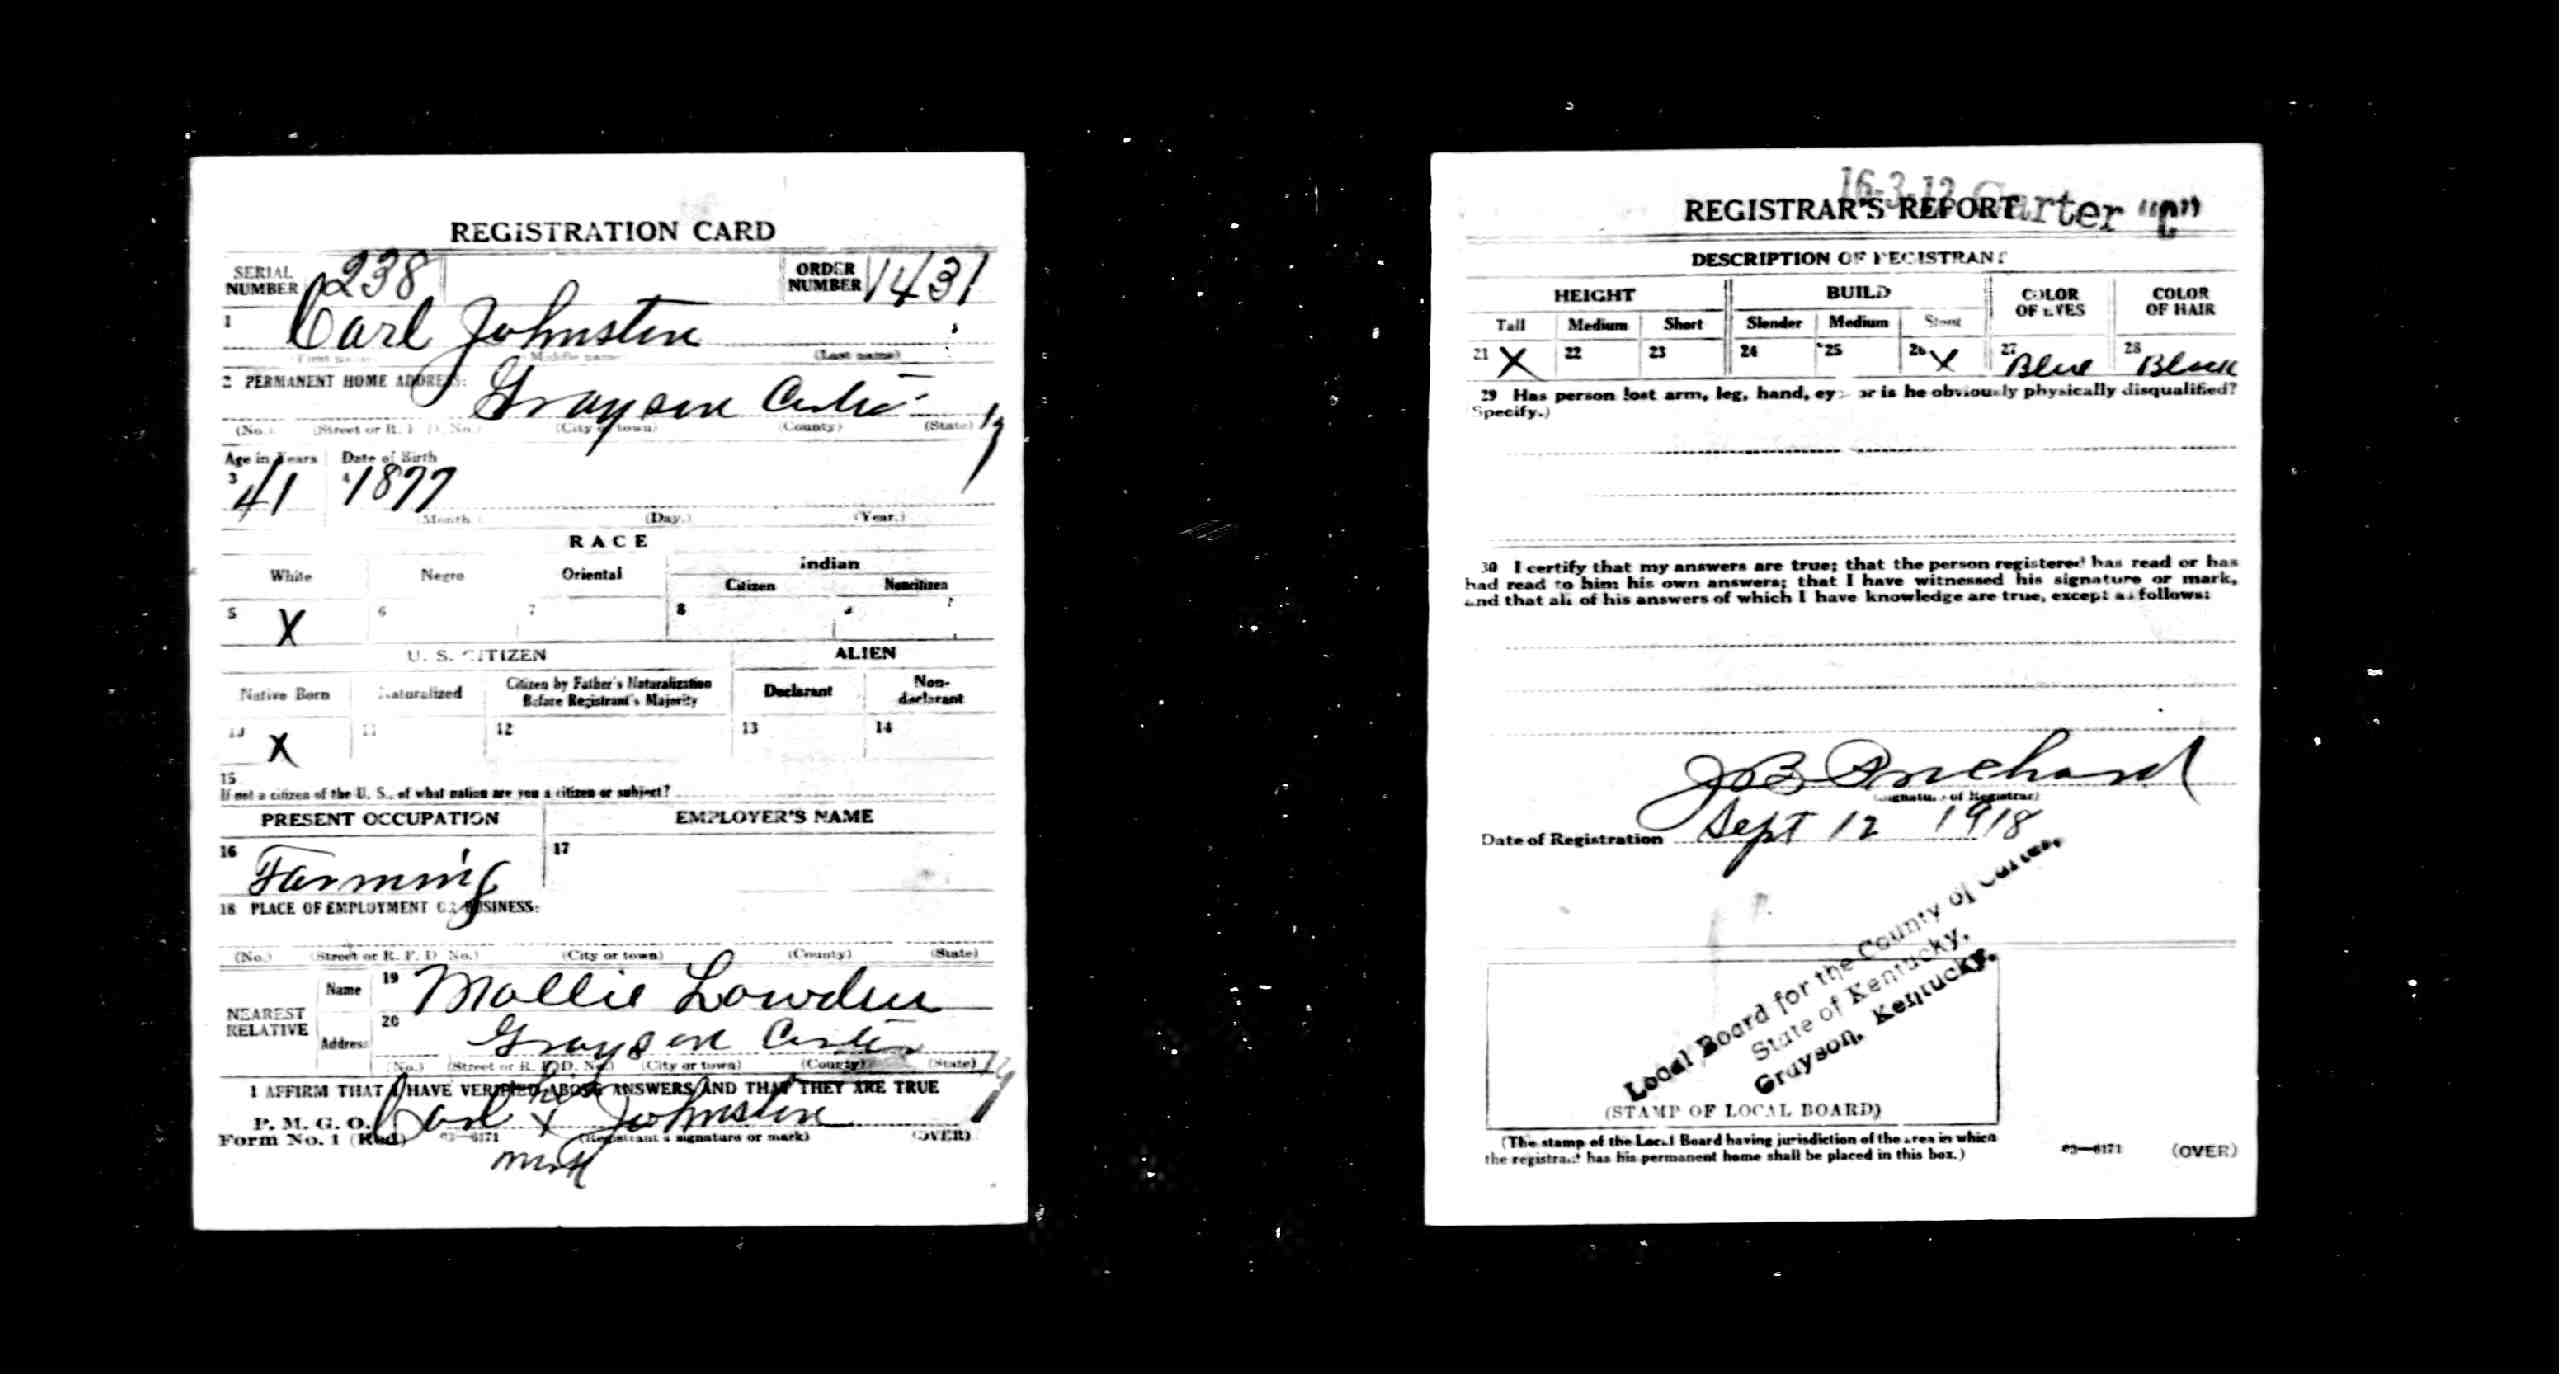 REGISTRATION CARD
SERIAL NUMBER 238 ORDER NUMBER 1431
1 Carl Johnston
(First name) (Middle name) (Last name)
2 PERMANENT HOME ADDRESS:
Grayson Carter Ky
(No.) (Street or R. F. D. No.) (City or town) (County) (State)
Age in Years Date of Birth
3 41 4 1877
(Month.) (Day.) (Year.)
RACE
White Negro Oriental Indian
Citizen Noncitizen
5 X 6 7 8 9
U. S. CITIZEN ALIEN
Native Born Naturalized Citizen by Father's Naturalization Before Registrant's Majority Declarant Non-declarant
10 X 11 12 13 14
15
If not a citizen of the U. S., of what nation are you a citizen or subject?
PRESENT OCCUPATION EMPLOYER'S NAME
16 Farming 17
18 PLACE OF EMPLOYMENT OR BUSINESS:
(No.) (Street or R. F. D. No.) (City or town) (County) (State)
NEAREST RELATIVE Name 19 Mollie Lowden
Address 20 Grayson Carter Ky
(No.) (Street or R. F. D. No.) (City or town) (County) (State)
I AFFIRM THAT I HAVE VERIFIED ABOVE ANSWERS AND THAT THEY ARE TRUE
his
P. M. G. O. Carl X Johnston
Form No. 1 (Red) 03—6171 (Registrant's signature or mark) (OVER)
mark
16-3-12 Carter "C"
REGISTRAR'S REPORT
DESCRIPTION OF REGISTRANT
HEIGHT BUILD COLOR OF EYES COLOR OF HAIR
Tall Medium Short Slender Medium Stout
21 X 22 23 24 25 26 X 27 Blue 28 Black
29 Has person lost arm, leg, hand, eye or is he obviously physically disqualified?
Specify.)
30 I certify that my answers are true; that the person registered has read or has
had read to him his own answers; that I have witnessed his signature or mark,
and that all of his answers of which I have knowledge are true, except as follows:
J B Prichard
(Signature of Registrar)
Date of Registration Sept 12 1918
Local Board for the County of Carter,
State of Kentucky.
Grayson, Kentucky.
(STAMP OF LOCAL BOARD)
(The stamp of the Local Board having jurisdiction of the area in which
the registrant has his permanent home shall be placed in this box.)
03—6171 (OVER)